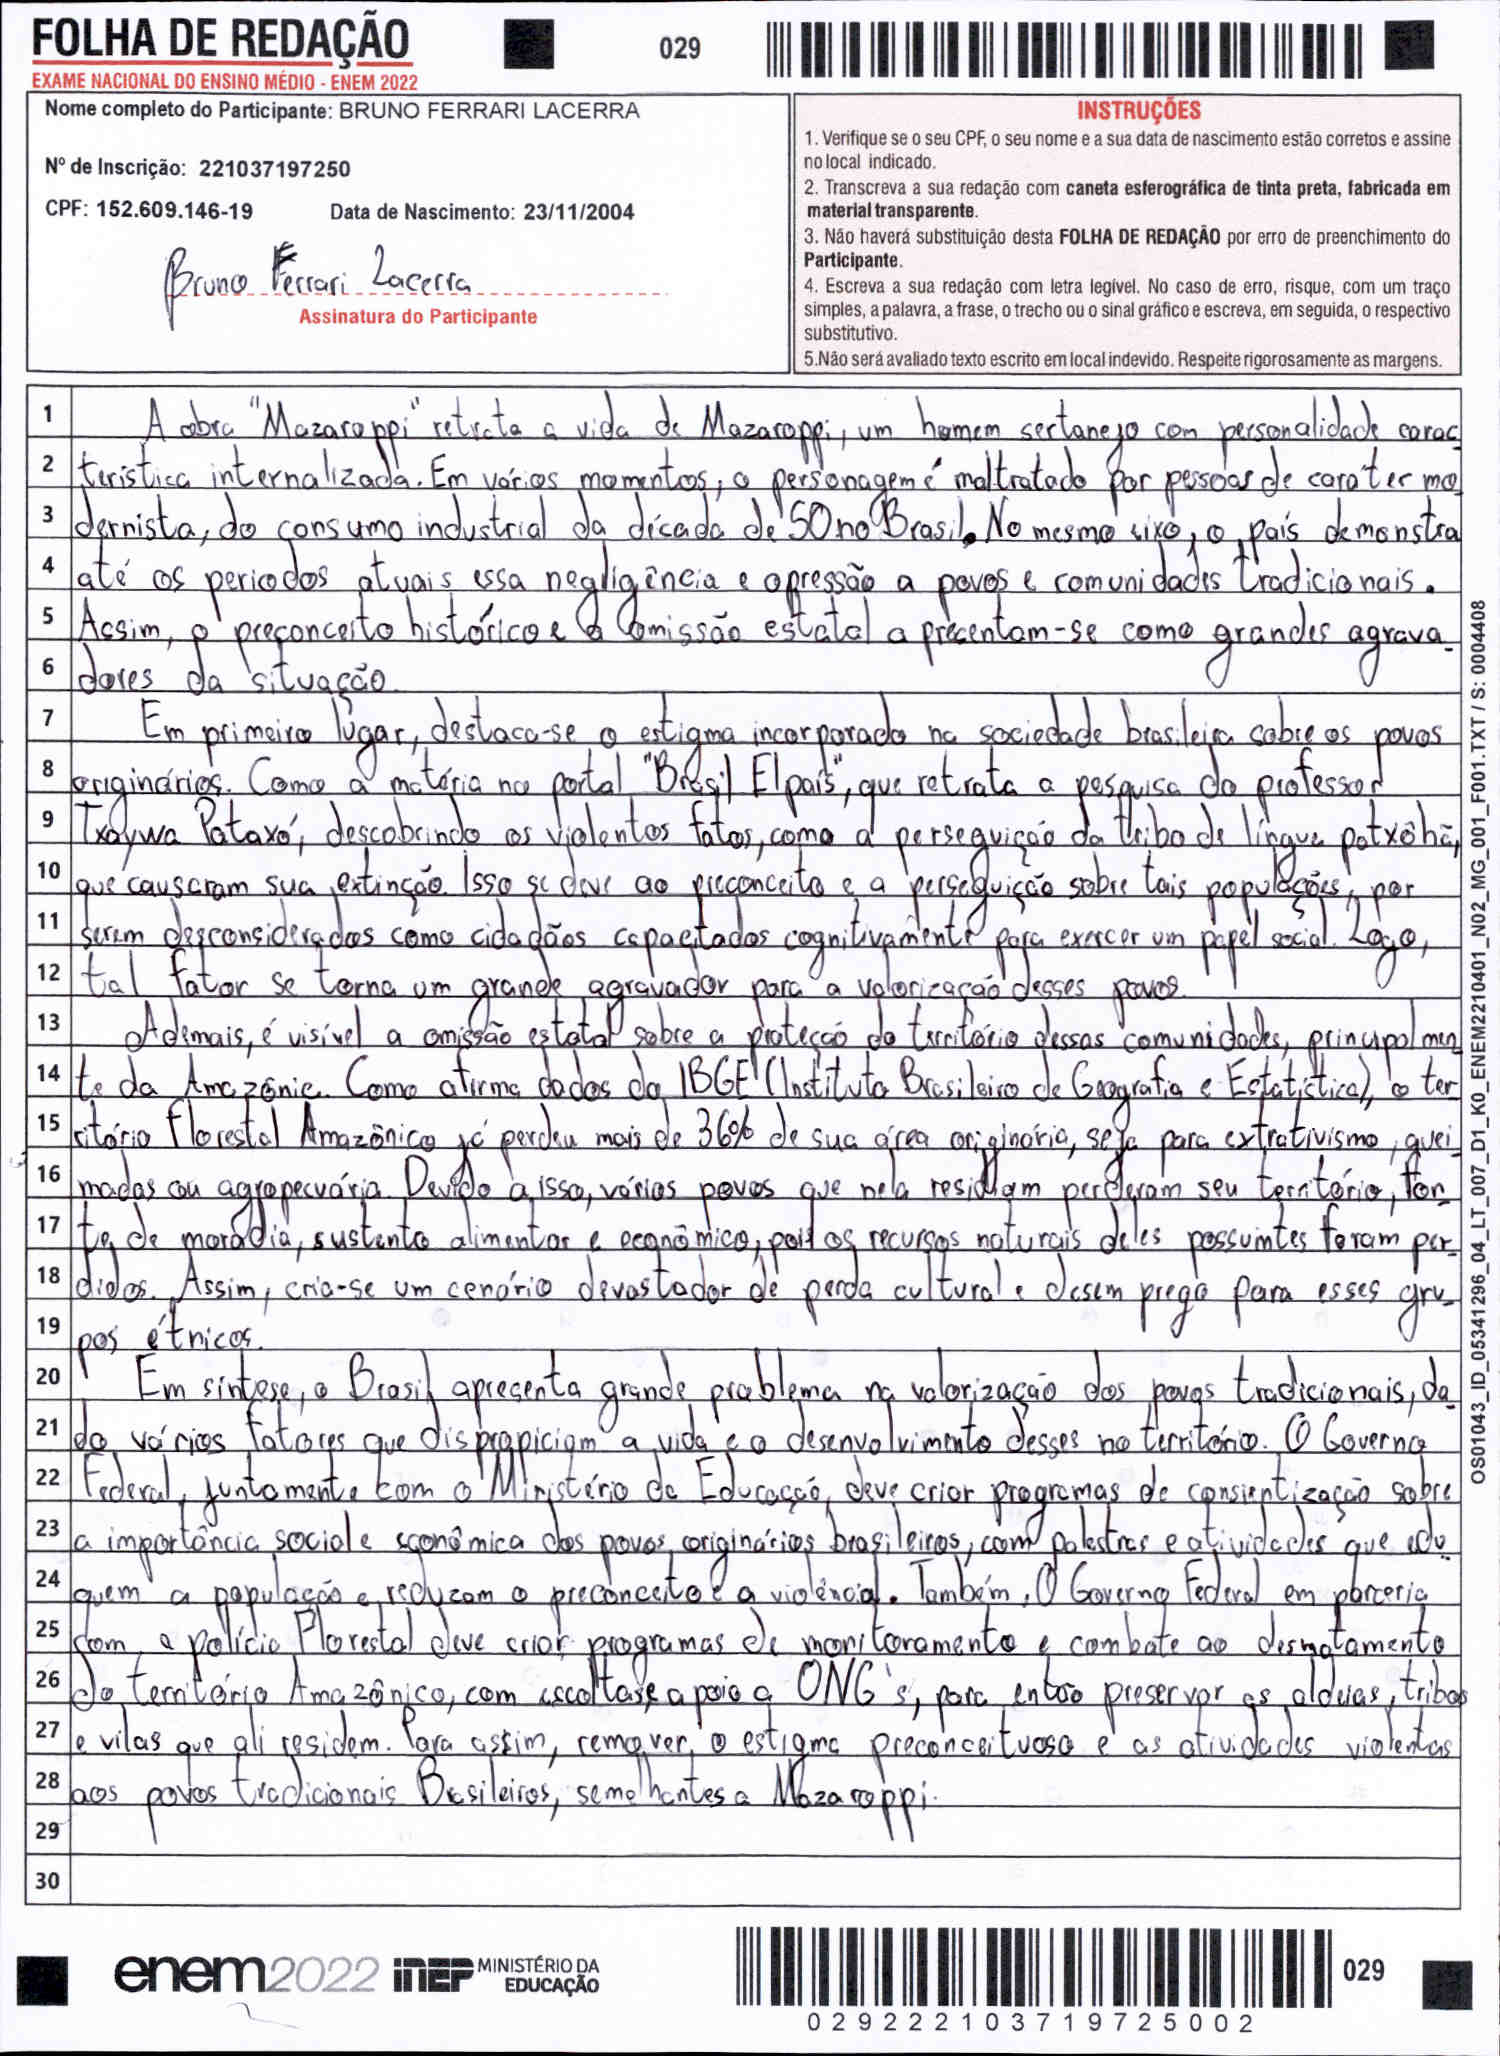 FOLHA DE REDAÇÃO
029
EXAME NACIONAL DO ENSINO MÉDIO - ENEM 2022
Nome completo do Participante: BRUNO FERRARI LACERRA
Nº de Inscrição: 221037197250
CPF: 152.609.146-19 Data de Nascimento: 23/11/2004
Bruno Ferrari Lacerra
Assinatura do Participante
INSTRUÇÕES
1. Verifique se o seu CPF, o seu nome e a sua data de nascimento estão corretos e assine
no local indicado.
2. Transcreva a sua redação com caneta esferográfica de tinta preta, fabricada em
material transparente.
3. Não haverá substituição desta FOLHA DE REDAÇÃO por erro de preenchimento do
Participante.
4. Escreva a sua redação com letra legível. No caso de erro, risque, com um traço
simples, a palavra, a frase, o trecho ou o sinal gráfico e escreva, em seguida, o respectivo
substitutivo.
5.Não será avaliado texto escrito em local indevido. Respeite rigorosamente as margens.
1 A obra "Mazaroppi" retrata a vida de Mazaroppi, um homem sertanejo com personalidade carac
2 terística internalizada. Em vários momentos, o personagem é maltratado por pessoas de caráter mo
3 dernista, do consumo industrial da década de 50 no Brasil. No mesmo eixo, o país demonstra
4 até os periodos atuais essa negligência e opressão a povos e comunidades tradicionais.
5 Assim, o preconceito histórico e a omissão estatal apresentam-se como grandes agrava_
6 dores da situação.
7 Em primeiro lugar, destaca-se o estigma incorporado na sociedade brasileira sobre os povos
8 originários. Como a matéria no portal "Brasil El país", que retrata a pesquisa do professor
9 Txaywa Pataxó, descobrindo os violentos fatos, como a perseguição da tribo de língua patxôhã,
10 que causaram sua extinção. Isso se deve ao preconceito e a perseguição sobre tais populações, por
11 serem desconsiderados como cidadãos capacitados cognitivamente para exercer um papel social. Logo,
12 tal fator se torna um grande agravador para a valorização desses povos.
13 Ademais, é visível a omissão estatal sobre a proteção do território dessas comunidades, principalmen
14 te da Amazônia. Como afirma dados do IBGE (Instituto Brasileiro de Geografia e Estatística), o ter
15 ritório florestal Amazônico já perdeu mais de 36% de sua área originária, seja para extrativismo, quei
16 madas ou agropecuária. Devido a isso, vários povos que nela residiam perderam seu território, fon_
17 te de moradia, sustento alimentar e econômico, pois os recursos naturais deles possuintes foram per_
18 didos. Assim, cria-se um cenário devastador de perda cultural e desemprego para esses gru_
19 pos étnicos.
20 Em síntese, o Brasil apresenta grande problema na valorização dos povos tradicionais, da_
21 do vários fatores que dispropiciam a vida e o desenvolvimento desses no território. O Governo
22 Federal, juntamente com o Ministério da Educação, deve criar programas de consientização sobre
23 a importância social e econômica dos povos originários brasileiros, com palestras e atividades que edu
24 quem a população e reduzam o preconceito e a violência. Também, O Governo Federal em parceria
25 com a polícia Florestal deve criar programas de monitoramento e combate ao desmatamento
26 do território Amazônico, com escoltas e apoio a ONG's, para então preservar as aldeias, tribos
27 e vilas que ali residem. Para assim, remover o estigma preconceituoso e as atividades violentas
28 aos povos tradicionais Brasileiros, semelhantes a Mazaroppi.
29
30
OS01043_ID_05341296_04_LT_007_D1_K0_ENEM2210401_N02_MG_001_F001.TXT / S: 0004408
enem2022 inep MINISTÉRIO DA
EDUCAÇÃO
029
029222103719725002